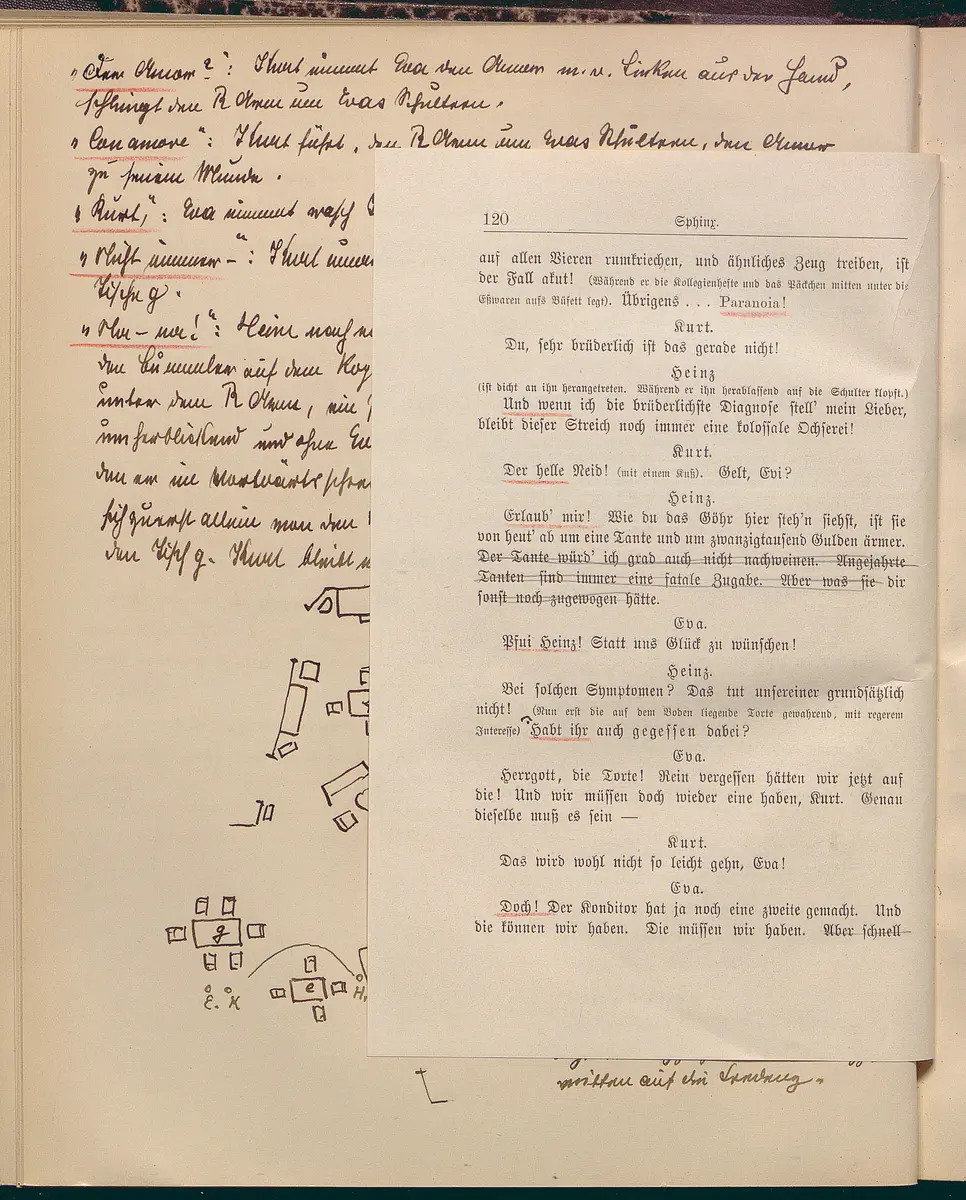 "Con amore": Kurt führt, den R Arm um Evas Schultern, den
schlingt den R Arm um Evas Schultern.
zu seinem Munde.
"Kurt,": Eva nimmt rasch
"Nicht immer –": Kurt
Tische g.
"Na – na!": Heinz nach
den Bummler auf dem
unter dem R Arm, ein
umherblickend und ohne
den er im Vorwärts
sich zuerst allein von den
den Tisch g. Kurt bleibt
g
e
E. K
H.
mitten auf die Credenz.
120 Sphinx.
auf allen Vieren rumkriechen, und ähnliches Zeug treiben, ist
der Fall akut! (Während er die Kollegienhefte und das Päckchen mitten unter die
Eßwaren aufs Büfett legt). Übrigens . . . Paranoia!
Kurt.
Du, sehr brüderlich ist das gerade nicht!
Heinz
(ist dicht an ihn herangetreten. Während er ihn herablassend auf die Schulter klopft.)
Und wenn ich die brüderlichste Diagnose stell' mein Lieber,
bleibt dieser Streich noch immer eine kolossale Ochserei!
Kurt.
Der helle Neid! (mit einem Kuß). Gelt, Evi?
Heinz.
Erlaub' mir! Wie du das Göhr hier steh'n siehst, ist sie
von heut' ab um eine Tante und um zwanzigtausend Gulden ärmer.
Der Tante würd' ich grad auch nicht nachweinen. Angejahrte
Tanten sind immer eine fatale Zugabe. Aber was sie dir
sonst noch zugewogen hätte.
Eva.
Pfui Heinz! Statt uns Glück zu wünschen!
Heinz.
Bei solchen Symptomen? Das tut unsereiner grundsätzlich
nicht! (Nun erst die auf dem Boden liegende Torte gewahrend, mit regerem
Interesse) Habt ihr auch gegessen dabei?
Eva.
Herrgott, die Torte! Rein vergessen hätten wir jetzt auf
die! Und wir müssen doch wieder eine haben, Kurt. Genau
dieselbe muß es sein —
Kurt.
Das wird wohl nicht so leicht gehn, Eva!
Eva.
Doch! Der Konditor hat ja noch eine zweite gemacht. Und
die können wir haben. Die müssen wir haben. Aber schnell